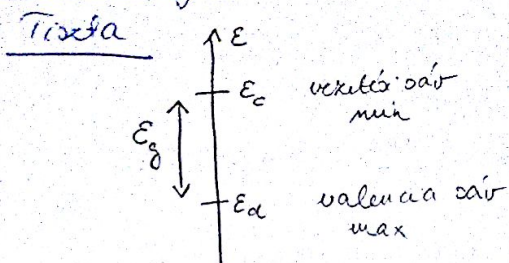 Tiszta
ε
εc vezetési sáv
min
εg
εd valencia sáv
max